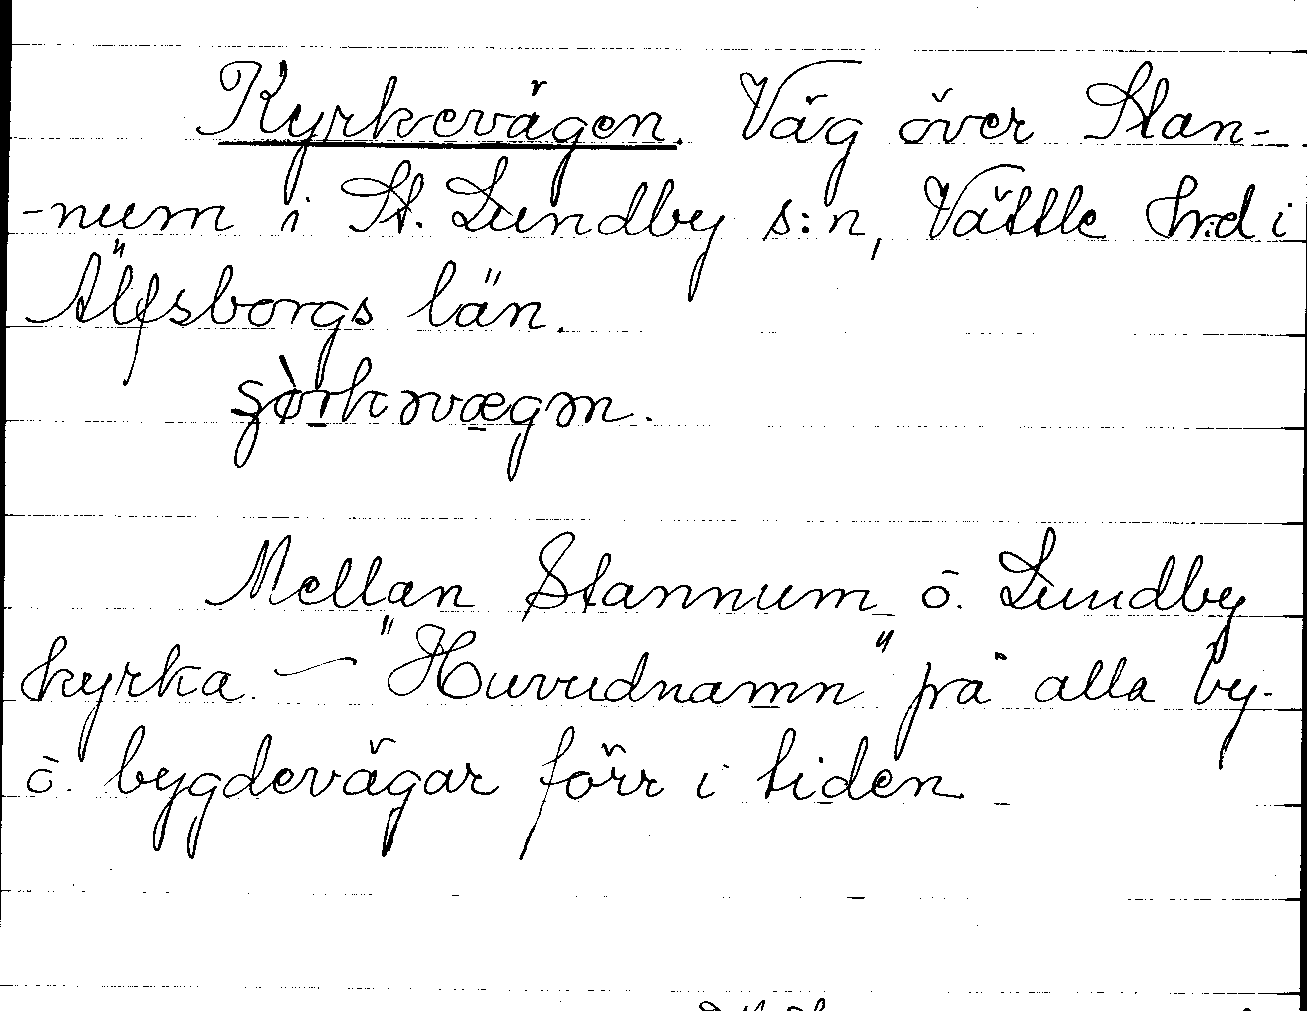 Kyrkevägen. Väg över Stan-
-num i St. Lundby s:n, Vättle h:d i
Älfsborgs län.
Mellan Stannum o. Lundby
kyrka. — "Huvudnamn" på alla by-
o. bygdevägar förr i tiden.